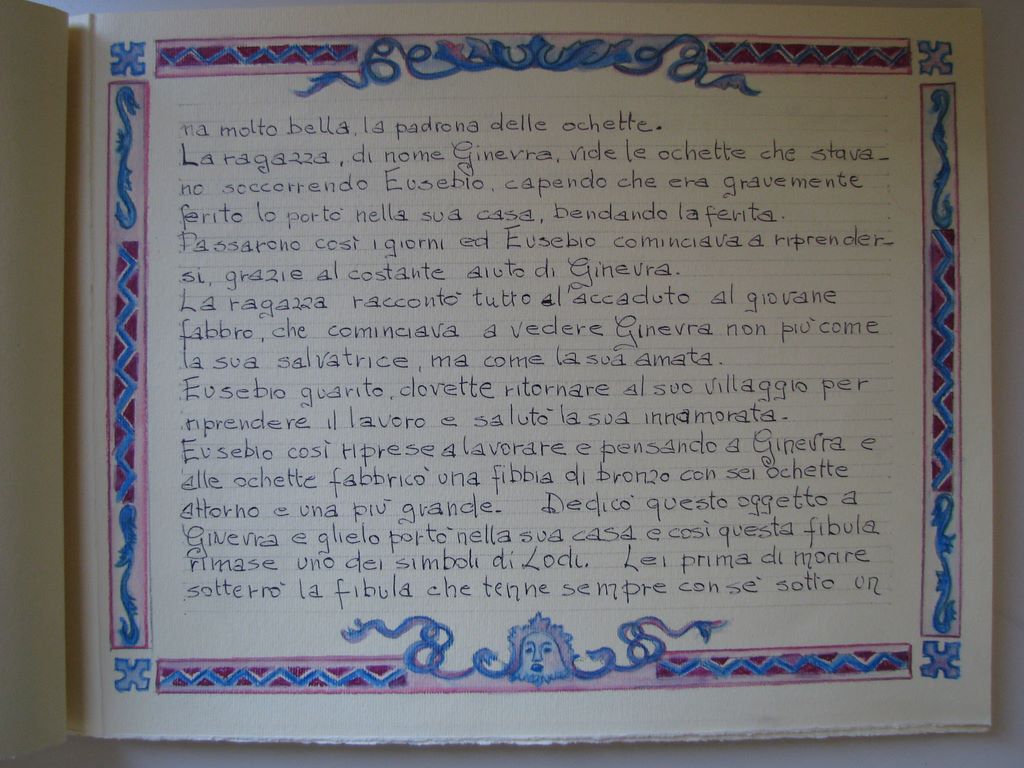 na molto bella, la padrona delle ochette.
La ragazza, di nome Ginevra, vide le ochette che stava-
no soccorrendo Eusebio, capendo che era gravemente
ferito lo portò nella sua casa, bendando la ferita.
Passarono così i giorni ed Eusebio cominciava a riprender-
si, grazie al costante aiuto di Ginevra.
La ragazza raccontò tutto l'accaduto al giovane
fabbro, che cominciava a vedere Ginevra non più come
la sua salvatrice, ma come la sua amata.
Eusebio guarito, dovette ritornare al suo villaggio per
riprendere il lavoro e salutò la sua innamorata.
Eusebio così riprese a lavorare e pensando a Ginevra e
alle ochette fabbricò una fibbia di bronzo con sei ochette
attorno e una più grande. Dedicò questo oggetto a
Ginevra e glielo portò nella sua casa e così questa fibula
rimase uno dei simboli di Lodi. Lei prima di morire
sotterrò la fibula che tenne sempre con sé sotto un